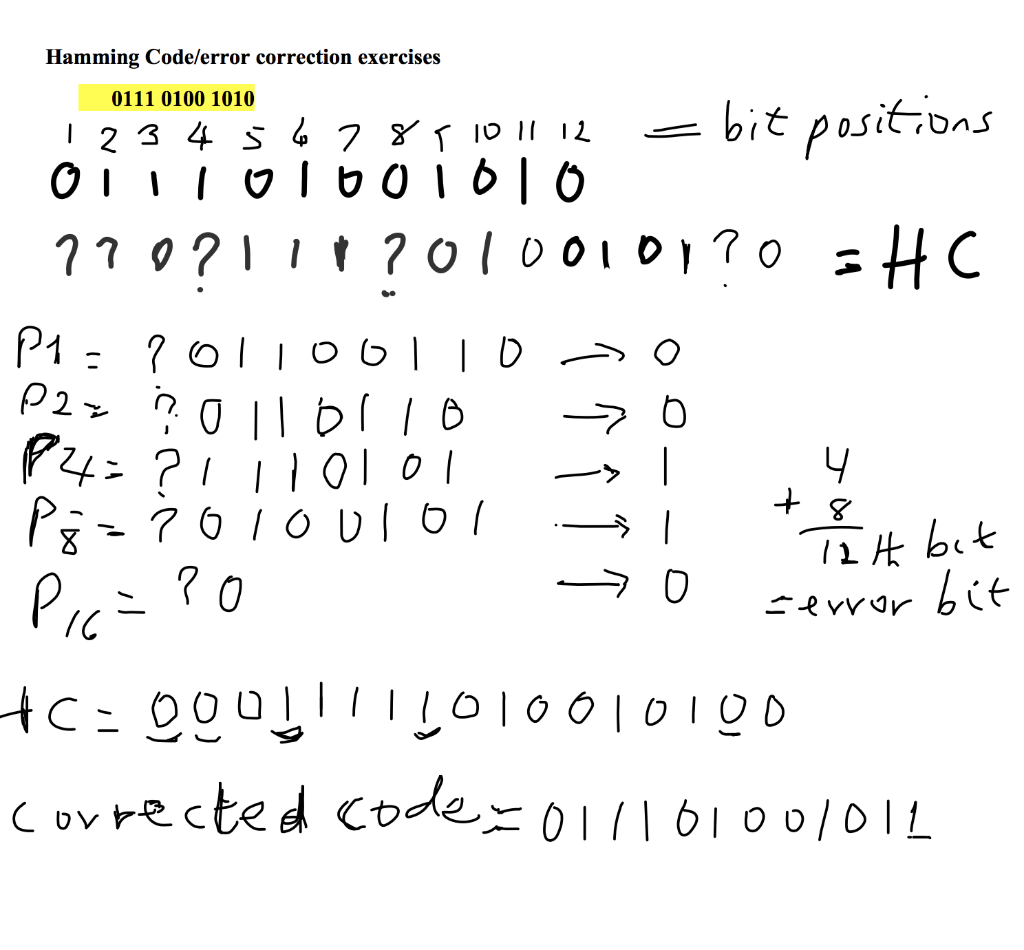 Hamming Code/error correction exercises
0111 0100 1010
1 2 3 4 5 6 7 8 9 10 11 12 = bit positions
0 1 1 1 0 1 0 0 1 0 1 0
? ? 0 ? 1 1 1 ? 0 1 0 0 1 0 1 ? 0 = HC
P1 = ? 0 1 1 0 0 1 1 0 → 0
P2 = ? 0 1 1 0 1 1 0 → 0
P4 = ? 1 1 1 0 1 0 1 → 1
P8 = ? 0 1 0 0 1 0 1 → 1
P16 = ? 0 → 0
4
+ 8
12th bit
= error bit
HC = 0 0 0 1 1 1 1 1 0 1 0 0 1 0 1 0 0
corrected code = 0 1 1 1 0 1 0 0 1 0 1 1